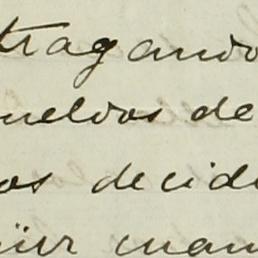 tragando
ueldos de
os decidi
üir man